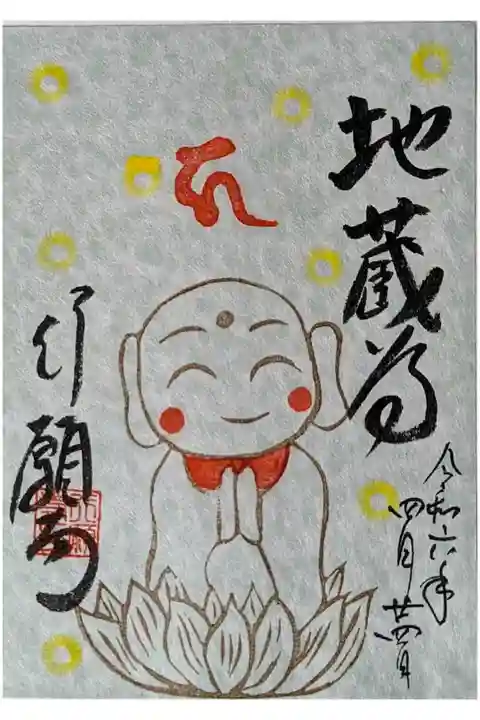 地蔵尊
令和六年
四月廿四日
行願寺